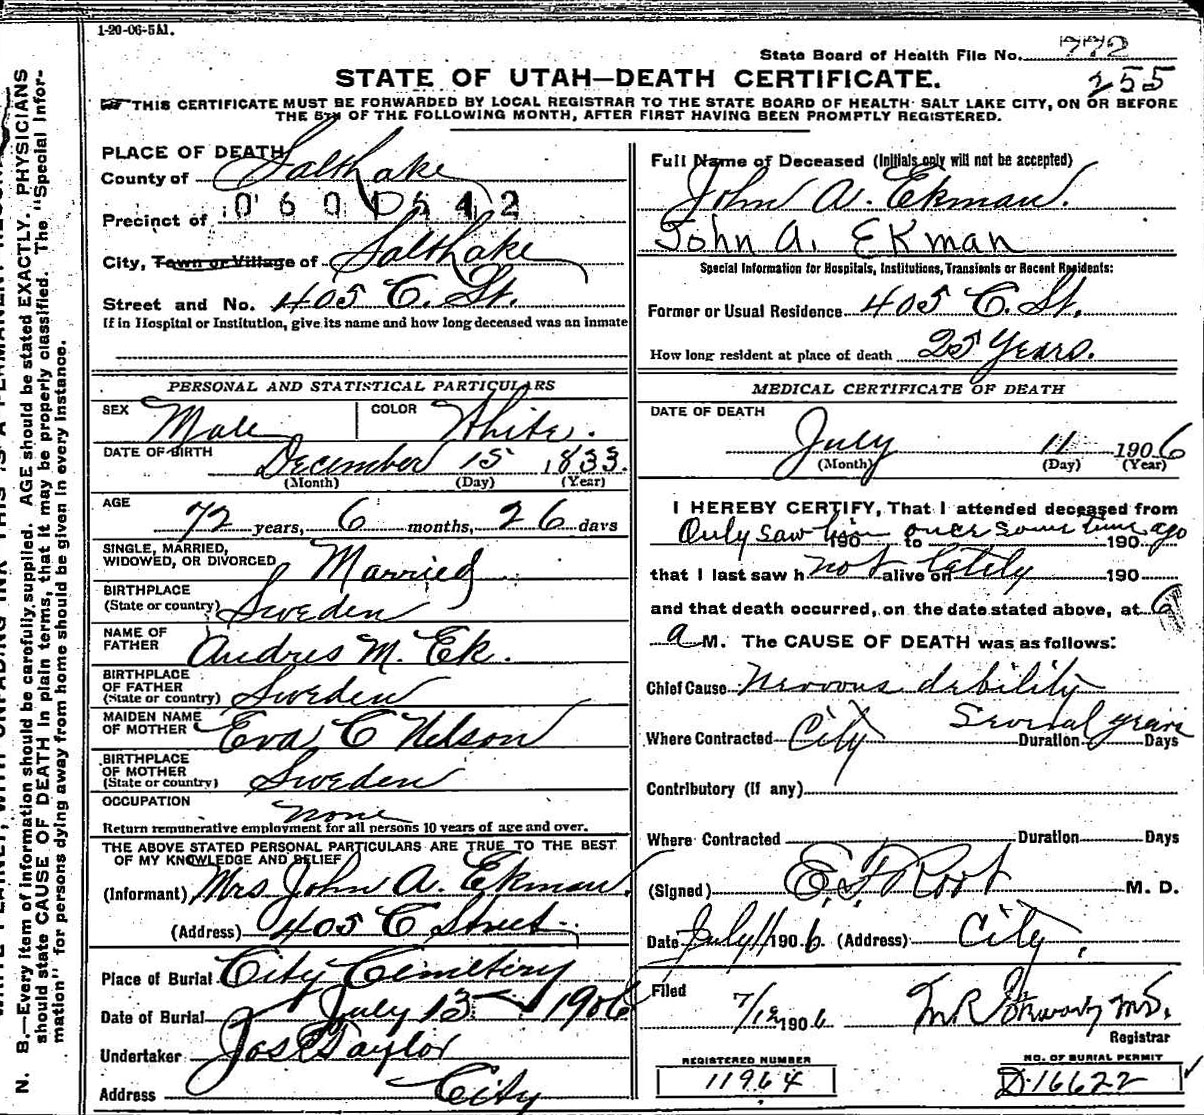 1-20-06-5M.
State Board of Health File No. 772
255
STATE OF UTAH—DEATH CERTIFICATE.
THIS CERTIFICATE MUST BE FORWARDED BY LOCAL REGISTRAR TO THE STATE BOARD OF HEALTH SALT LAKE CITY, ON OR BEFORE
THE 5TH OF THE FOLLOWING MONTH, AFTER FIRST HAVING BEEN PROMPTLY REGISTERED.
PLACE OF DEATH
County of Salt Lake
0 6 0 0 5 4 2
Precinct of
City, Town or Village of Salt Lake
Street and No. 405 C. St.
If in Hospital or Institution, give its name and how long deceased was an inmate
PERSONAL AND STATISTICAL PARTICULARS
SEX Male COLOR White.
DATE OF BIRTH December 15 1833.
(Month) (Day) (Year)
AGE 72 years, 6 months, 26 days
SINGLE, MARRIED,
WIDOWED, OR DIVORCED Married
BIRTHPLACE
(State or country) Sweden
NAME OF
FATHER Andres M. Ek.
BIRTHPLACE
OF FATHER
(State or country) Sweden
MAIDEN NAME
OF MOTHER Eva C Nelson
BIRTHPLACE
OF MOTHER
(State or country) Sweden
OCCUPATION none
Return remunerative employment for all persons 10 years of age and over.
THE ABOVE STATED PERSONAL PARTICULARS ARE TRUE TO THE BEST
OF MY KNOWLEDGE AND BELIEF
(Informant) Mrs John A. Ekman.
(Address) 405 C Street.
Place of Burial City Cemetery
Date of Burial July 13 1906
Undertaker Jos E Taylor
Address City
Full Name of Deceased (Initials only will not be accepted)
John A. Ekman.
John A. Ekman
Special Information for Hospitals, Institutions, Transients or Recent Residents:
Former or Usual Residence 405 C. St.
How long resident at place of death 25 Years.
MEDICAL CERTIFICATE OF DEATH
DATE OF DEATH
July 11 1906
(Month) (Day) (Year)
I HEREBY CERTIFY, That I attended deceased from
Only saw him 190 to once some time ago 190
that I last saw h not alive on lately 190
and that death occurred, on the date stated above, at 6
a M. The CAUSE OF DEATH was as follows:
Chief Cause Nervous debility
Several years
Where Contracted City Duration Days
Contributory (if any)
Where Contracted Duration Days
(Signed) E. F. Root M. D.
Date July 11 1906. (Address) City.
Filed
7/12 1906 M.D.
Registrar
REGISTERED NUMBER
11964
NO. OF BURIAL PERMIT
D-16622
N. B.—Every item of information should be carefully supplied. AGE should be stated EXACTLY. PHYSICIANS
should state CAUSE OF DEATH in plain terms, that it may be properly classified. The "Special Infor-
mation" for persons dying away from home should be given in every instance.